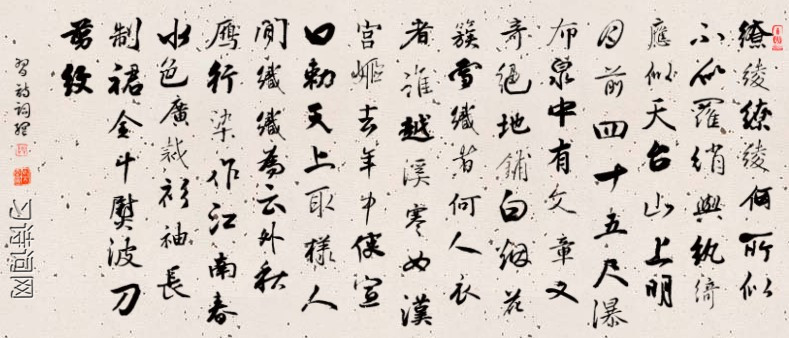 繚綾繚綾何所似
不似羅綃與紈綺
應似天台山上明
月前四十五尺瀑
布泉中有文章又
奇絕地鋪白烟花
簇雪織者何人衣
者誰越溪寒女漢
宮姬去年中使宣
口勅天上取樣人
間織織為云外秋
鴈行染作江南春
水色廣裁衫袖長
制裙金斗熨波刀
剪紋
習詩詞
习诗词网